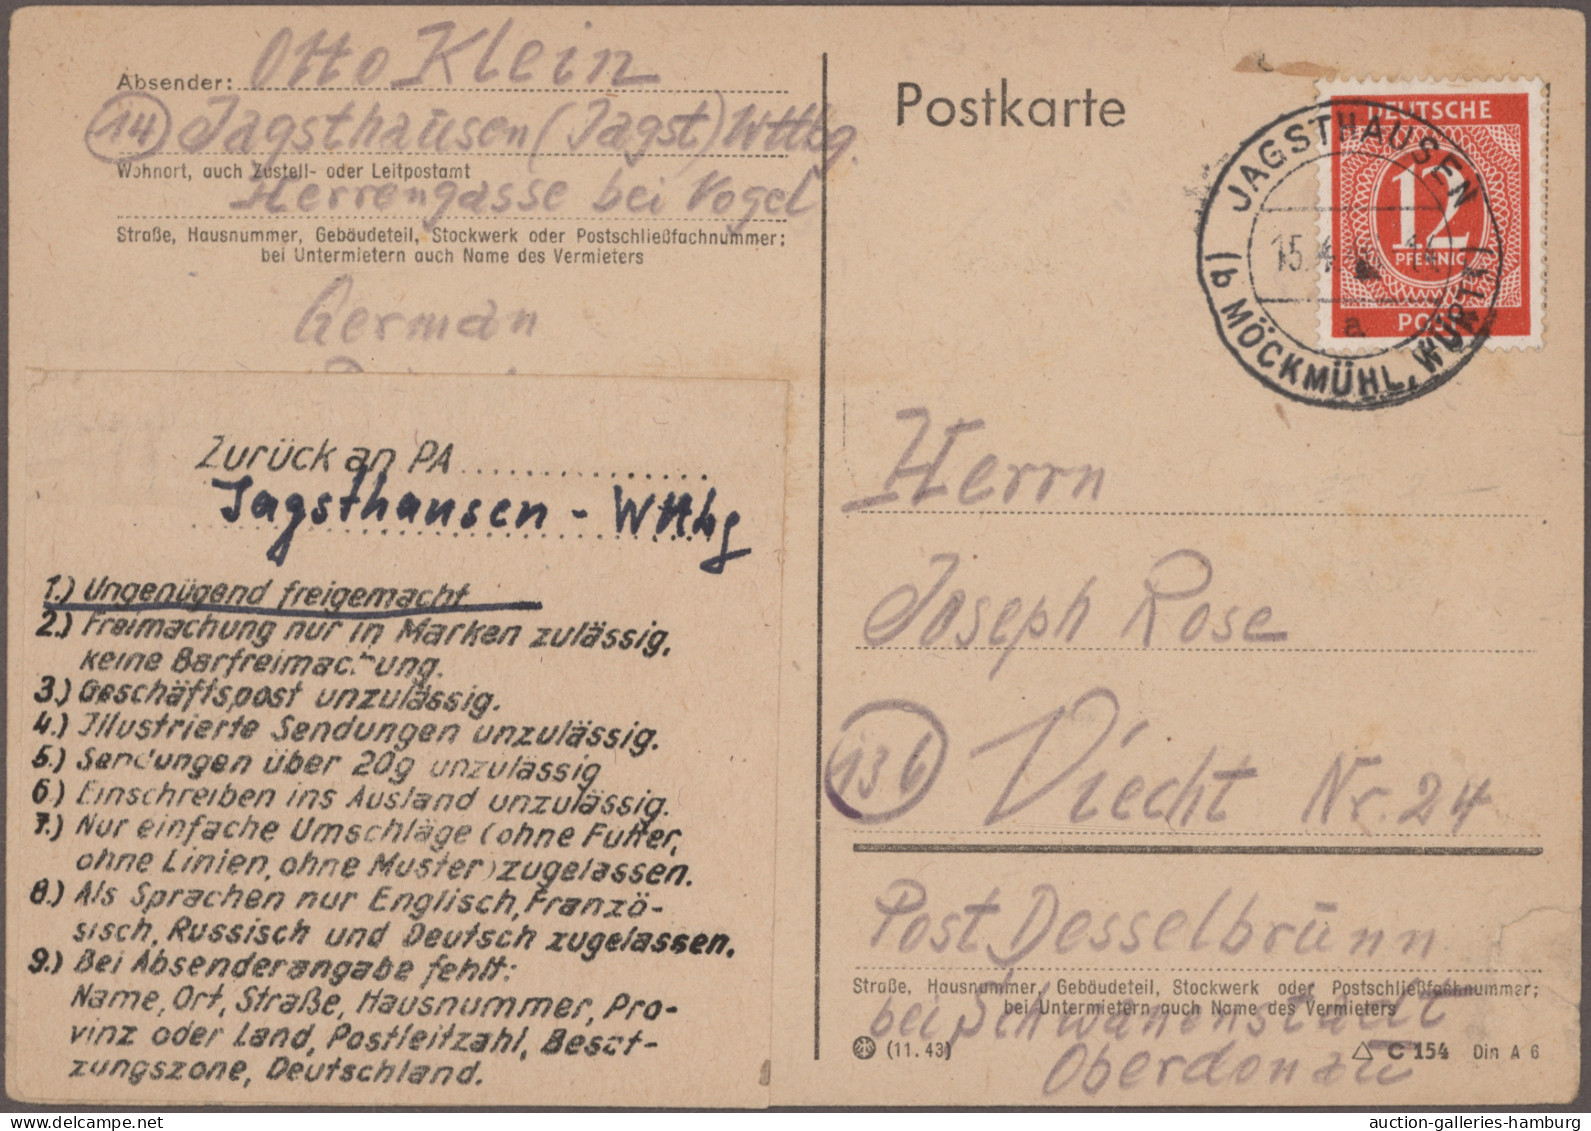 Absender: Otto Klein
(14) Jagsthausen (Jagst) Wttbg.
Wohnort, auch Zustell- oder Leitpostamt
Herrengasse bei Vogel
Straße, Hausnummer, Gebäudeteil, Stockwerk oder Postschließfachnummer;
bei Untermietern auch Name des Vermieters
German
Zurück an PA
Jagsthausen - Wttbg
1.) Ungenügend freigemacht
2.) Freimachung nur in Marken zulässig,
keine Barfreimachung.
3.) Geschäftspost unzulässig.
4.) Illustrierte Sendungen unzulässig.
5.) Sendungen über 20g unzulässig
6.) Einschreiben ins Ausland unzulässig.
7.) Nur einfache Umschläge (ohne Futter,
ohne Linien, ohne Muster) zugelassen.
8.) Als Sprachen nur Englisch, Franzö-
sisch, Russisch und Deutsch zugelassen.
9.) Bei Absenderangabe fehlt:
Name, Ort, Straße, Hausnummer, Pro-
vinz oder Land, Postleitzahl, Besat-
zungszone, Deutschland.
Postkarte
DEUTSCHE
12
PFENNIG
POST
JAGSTHAUSEN
15.4.
a
(b MÖCKMÜHL, WÜRTT.)
Herrn
Joseph Rose
(13b) Viecht Nr. 24
Post Desselbrunn
Straße, Hausnummer, Gebäudeteil, Stockwerk oder Postschließfachnummer;
bei Untermietern auch Name des Vermieters
bei Schwanenstadt
(11.43) C 154 Din A 6
Oberdonau
auction-galleries-hamburg